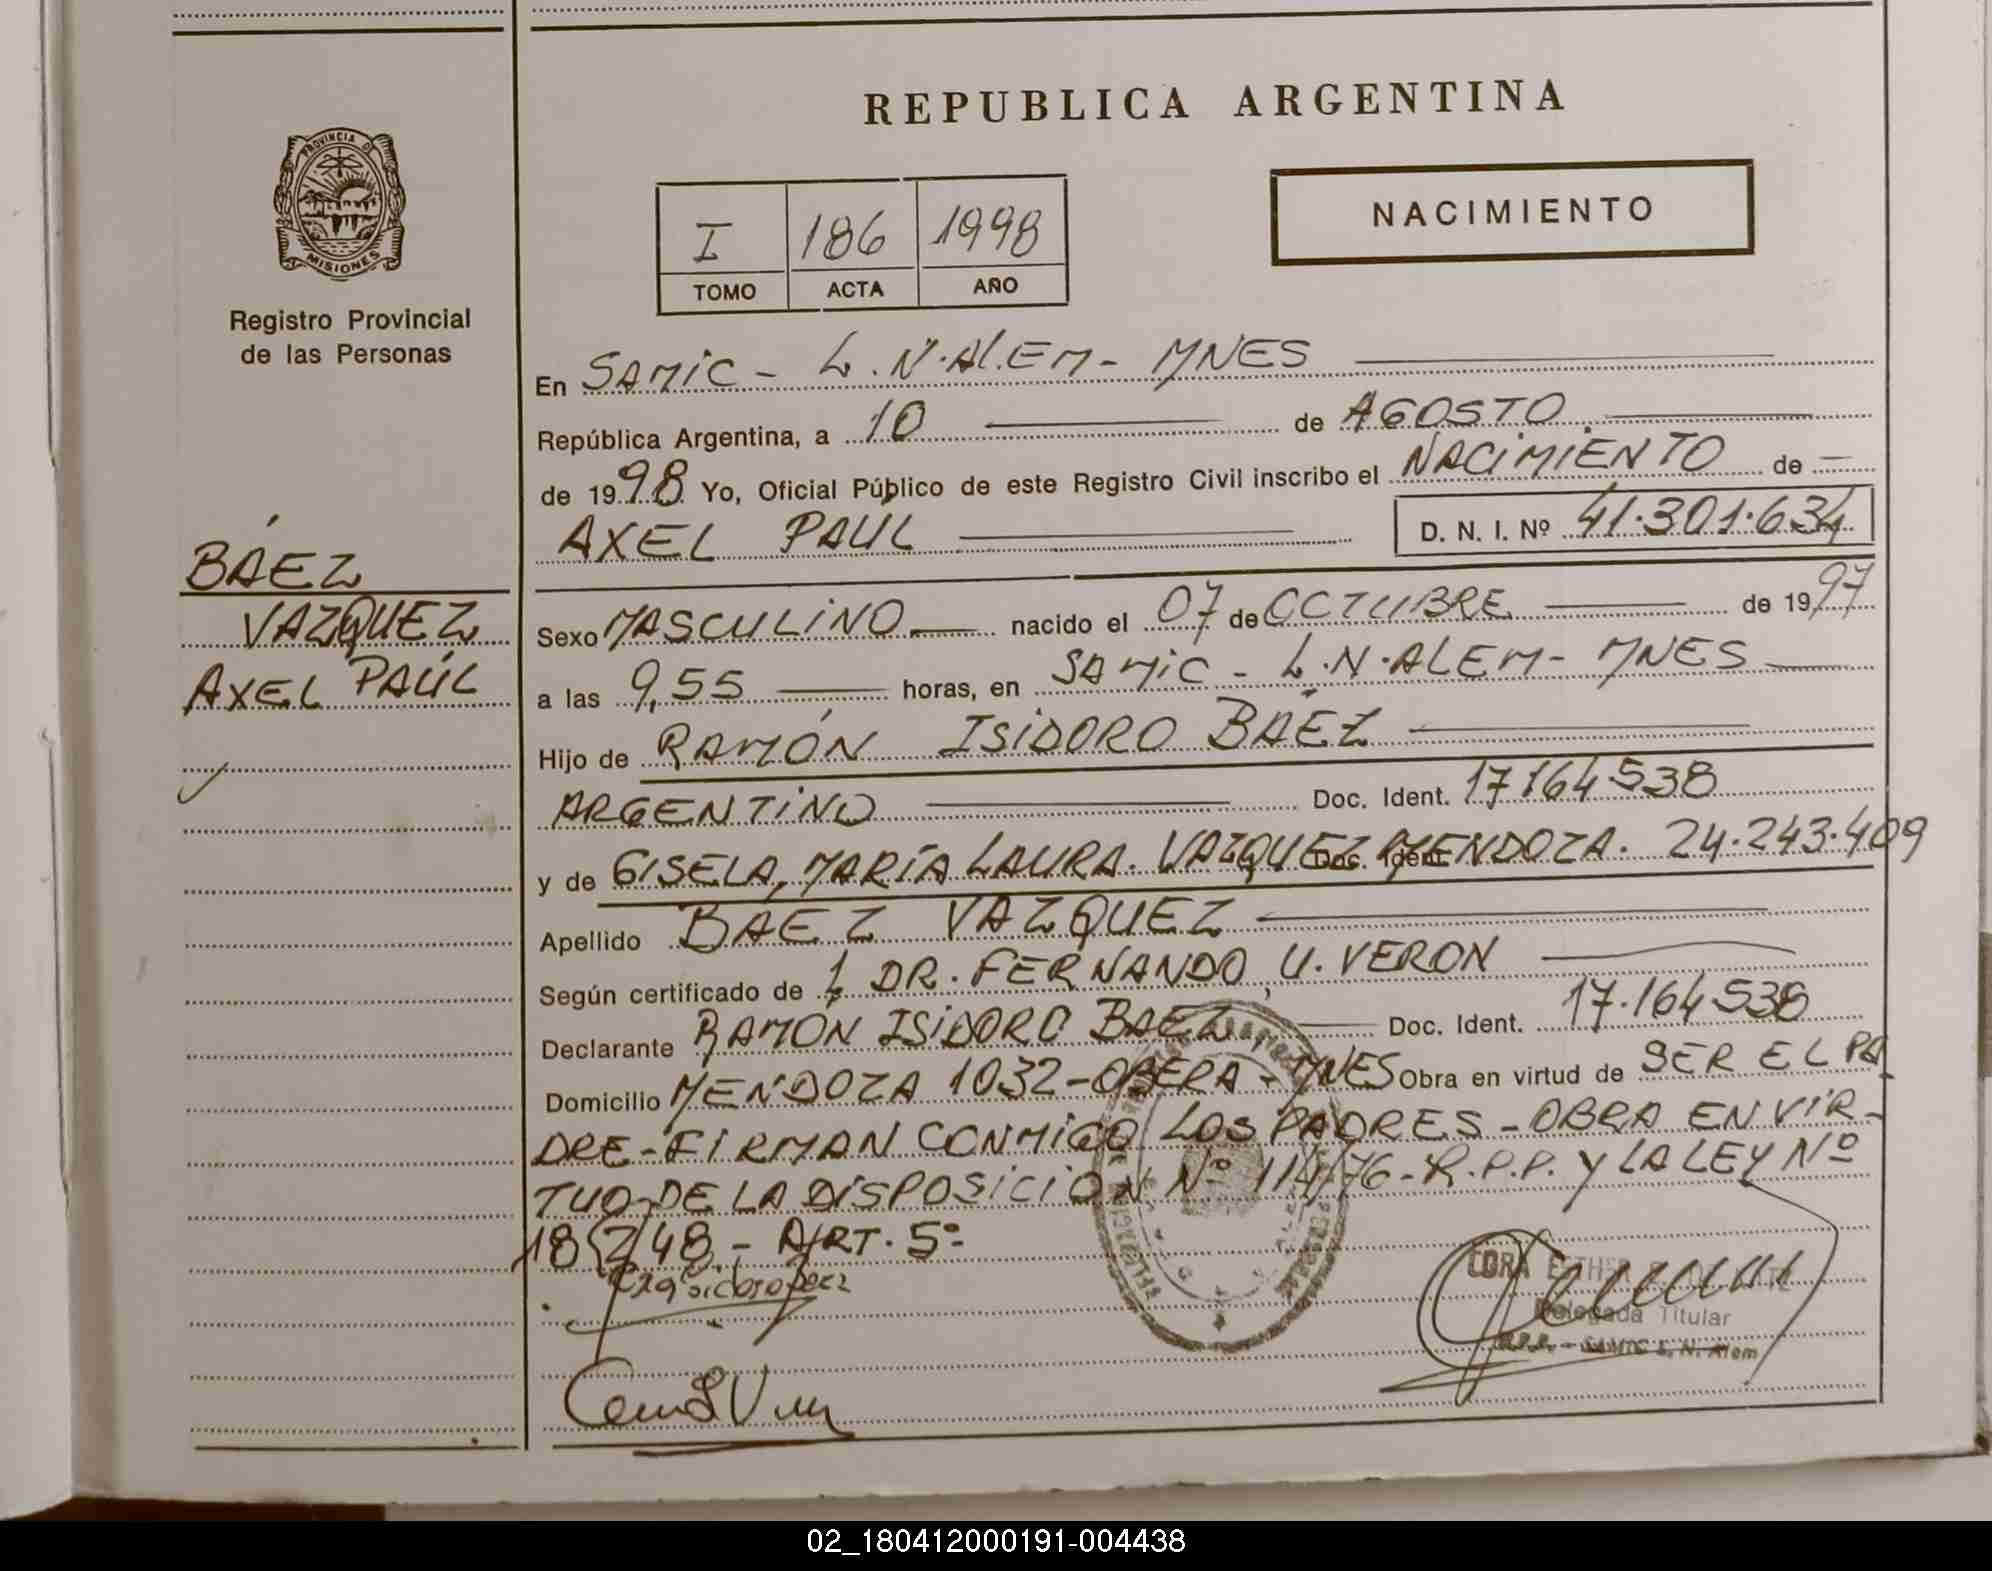 REPUBLICA ARGENTINA
PROVINCIA DE
MISIONES
Registro Provincial
de las Personas
NACIMIENTO
I 186 1998
TOMO ACTA AÑO
En SAMIC - L.N.ALEM - MNES
República Argentina, a 10 de AGOSTO
de 1998 Yo, Oficial Público de este Registro Civil inscribo el NACIMIENTO de
AXEL PAÚL D. N. I. Nº 41.301.634
BÁEZ
VAZQUEZ
AXEL PAÚL
Sexo MASCULINO nacido el 07 de OCTUBRE de 1997
a las 9,55 horas, en SAMIC - L.N.ALEM - MNES
Hijo de RAMÓN ISIDORO BÁEZ
ARGENTINO Doc. Ident. 17164538
y de GISELA, MARÍA LAURA. VAZQUEZ MENDOZA. Doc. Ident. 24.243.409
Apellido BAEZ VAZQUEZ
Según certificado de DR. FERNANDO, U. VERON
Declarante RAMÓN ISIDORO BAEZ Doc. Ident. 17.164.538
Domicilio MENDOZA 1032 - OBERA - MNES Obra en virtud de SER EL PA
DRE - FIRMAN CONMIGO LOS PADRES - OBRA EN VIR-
TUD DE LA DISPOSICION Nº 114/76 - R.P.P. Y LA LEY Nº
18248 - ART. 5º
Delegada Titular
SAMIC L. N. Alem
02_180412000191-004438